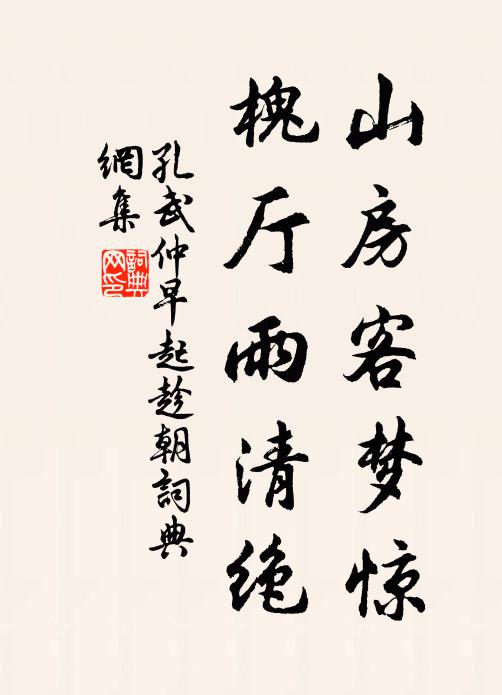 山房客梦惊
槐厅雨清绝
孔武仲早起趁朝詞典
網集
詞典
网印